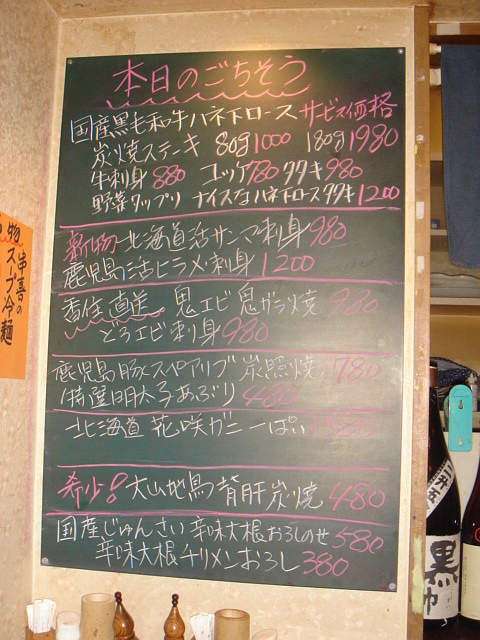 本日のごちそう
国産黒毛和牛ハネトロース サービス価格
炭焼ステーキ 80g 1000 180g 1980
牛刺身 880 ユッケ 780 タタキ 980
野菜タップリ ナイスなハネトロースタタキ 1200
新物 北海道活サンマ刺身 980
鹿児島活ヒラメ刺身 1200
香住直送 鬼エビ鬼ガラ焼 980
どろエビ刺身 980
鹿児島豚スペアリブ炭照焼 780
特選明太子あぶり 480
北海道 花咲ガニ一ぱい
希少! 大山地鳥背肝炭焼 480
国産じゅんさい辛味大根おろしのせ 580
辛味大根チリメンおろし 380
串喜の
スープ冷麺
黒